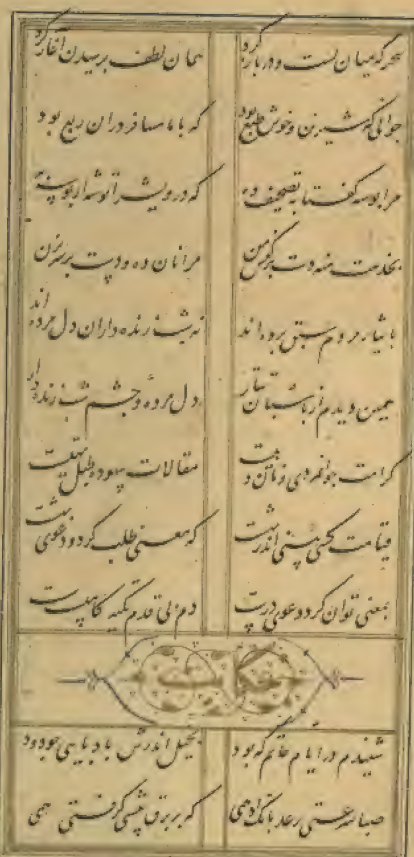 سحرگه میان بست و در باز کرد همان لطف پرسیدن آغاز کرد
جوانی که شیرین و خوش طبع بود که با ما مسافر دران ربع بود
مرا بوسه گفتا به تصحیف ده که درویش را توشه از بوسه به
بخدمت منه دست بر کفش من مرا نان ده و دست بر سر بزن
بایثار مردم سبق برده اند نه شب زنده داران دل مرده اند
همین دیدم از پاسبان تتار دل مرده و چشم شب زنده دار
کرامت جوانمردی و نان دهیست مقالات بیهوده طبل تهیست
قیامت کسی بینی اندر بهشت که معنی طلب کرد و دعوی بهشت
بمعنی توان کرد دعوی درست دم بی قدم تکیه کاهیست سست
حکایت
شنیدم در ایام حاتم که بود بخیل اندرش بادپایی چو دود
صبا سرعتی رعد بانک ادهمی که بر برق پیشی کرفتی همی